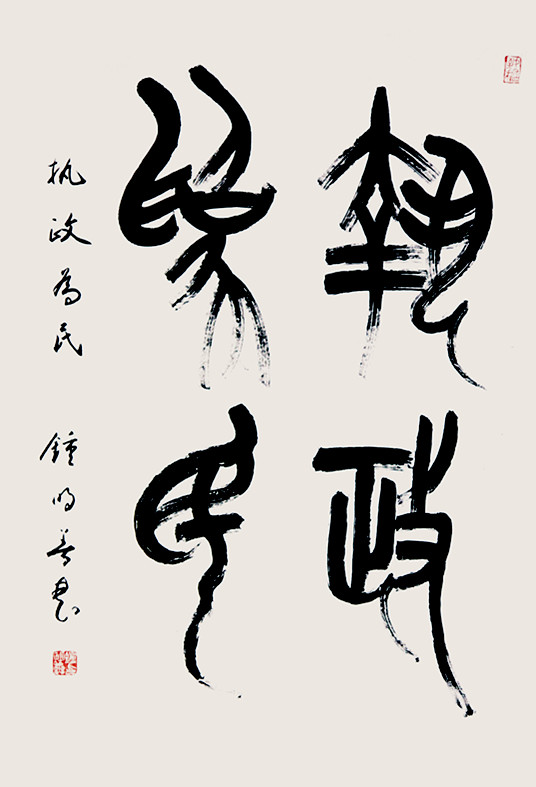 執政
為民
执政为民 鍾明善书